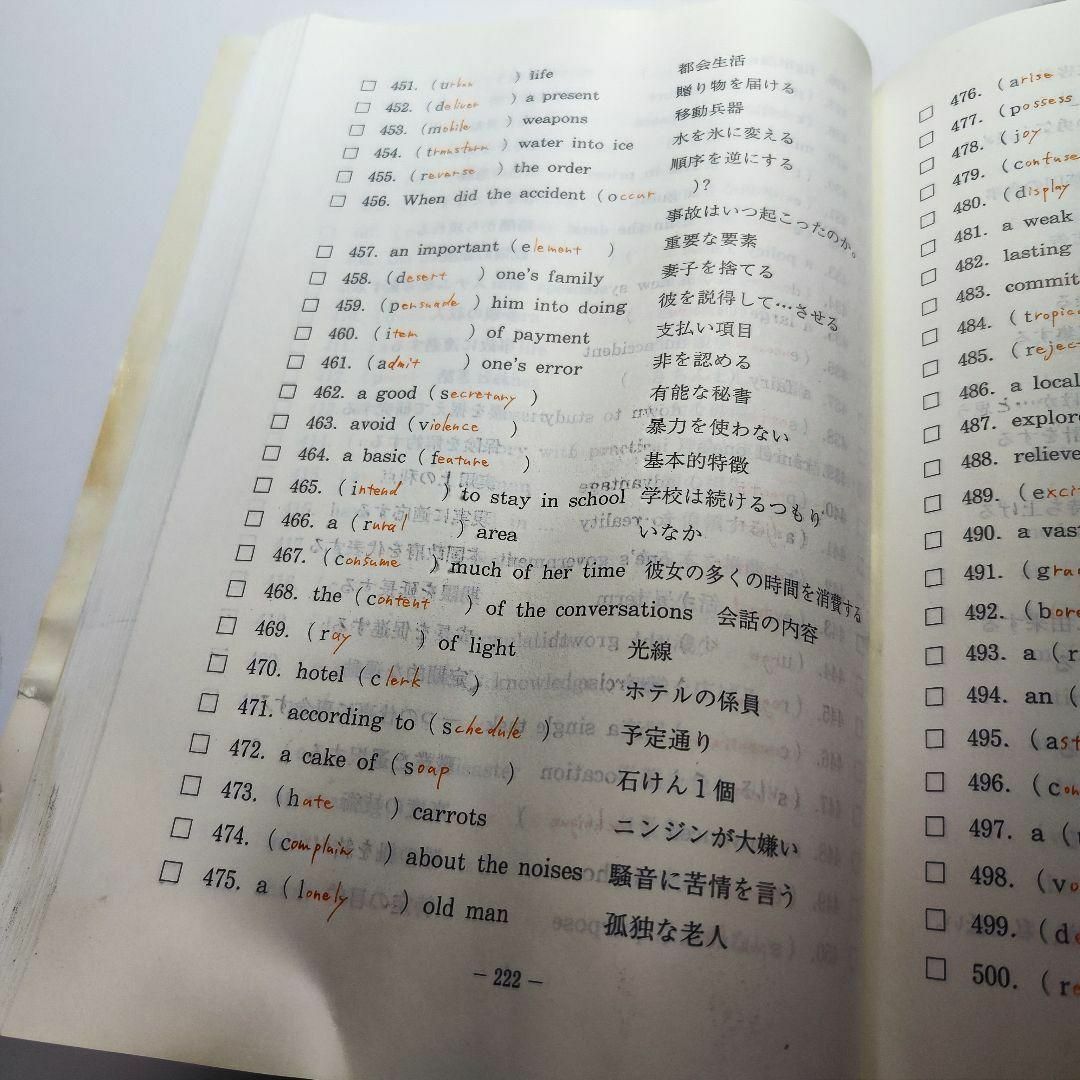 □ 451. (urban) life 都会生活
□ 452. (deliver) a present 贈り物を届ける
□ 453. (mobile) weapons 移動兵器
□ 454. (transform) water into ice 水を氷に変える
□ 455. (reverse) the order 順序を逆にする
□ 456. When did the accident (occur)?
事故はいつ起こったのか。
□ 457. an important (element) 重要な要素
□ 458. (desert) one's family 妻子を捨てる
□ 459. (persuade) him into doing 彼を説得して…させる
□ 460. (item) of payment 支払い項目
□ 461. (admit) one's error 非を認める
□ 462. a good (secretary) 有能な秘書
□ 463. avoid (violence) 暴力を使わない
□ 464. a basic (feature) 基本的特徴
□ 465. (intend) to stay in school 学校は続けるつもり
□ 466. a (rural) area いなか
□ 467. (consume) much of her time 彼女の多くの時間を消費する
□ 468. the (content) of the conversations 会話の内容
□ 469. (ray) of light 光線
□ 470. hotel (clerk) ホテルの係員
□ 471. according to (schedule) 予定通り
□ 472. a cake of (soap) 石けん1個
□ 473. (hate) carrots ニンジンが大嫌い
□ 474. (complain) about the noises 騒音に苦情を言う
□ 475. a (lonely) old man 孤独な老人
— 222 —
□ 476. (arise
□ 477. (possess
□ 478. (joy
□ 479. (confuse
□ 480. (display
□ 481. a weak
□ 482. lasting
□ 483. commit
□ 484. (tropic
□ 485. (reject
□ 486. a local
□ 487. explor
□ 488. relieve
□ 489. (exci
□ 490. a vas
□ 491. (gra
□ 492. (bore
□ 493. a (r
□ 494. an (
□ 495. (ast
□ 496. (con
□ 497. a (
□ 498. (vo
□ 499. (de
□ 500. (re